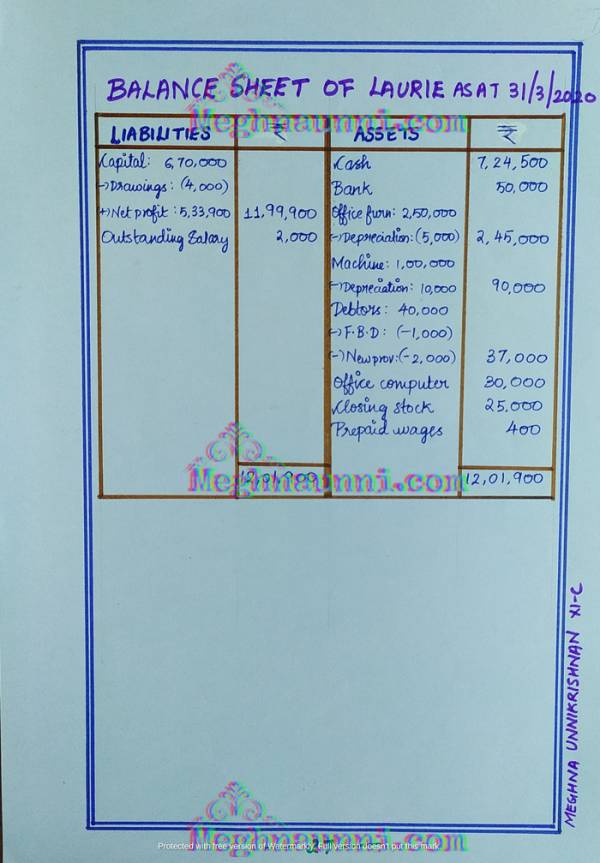 BALANCE SHEET OF LAURIE AS AT 31/3/2020
Meghnaunni.com
LIABILITIES ₹ ASSETS ₹
Capital: 6,70,000 Cash 7,24,500
(-) Drawings: (4,000) Bank 50,000
(+) Net profit: 5,33,900 11,99,900 Office furn: 2,50,000
Outstanding Salary 2,000 (-) Depreciation: (5,000) 2,45,000
Machine: 1,00,000
(-) Depreciation: 10,000 90,000
Debtors: 40,000
(-) F.B.D: (-1,000)
(-) New prov: (-2,000) 37,000
Office computer 30,000
Closing stock 25,000
Prepaid wages 400
12,01,900 12,01,900
Meghnaunni.com
MEGHNA UNNIKRISHNAN XI-C
Meghnaunni.com
Protected with free version of Watermarkly. Full version doesn't put this mark.